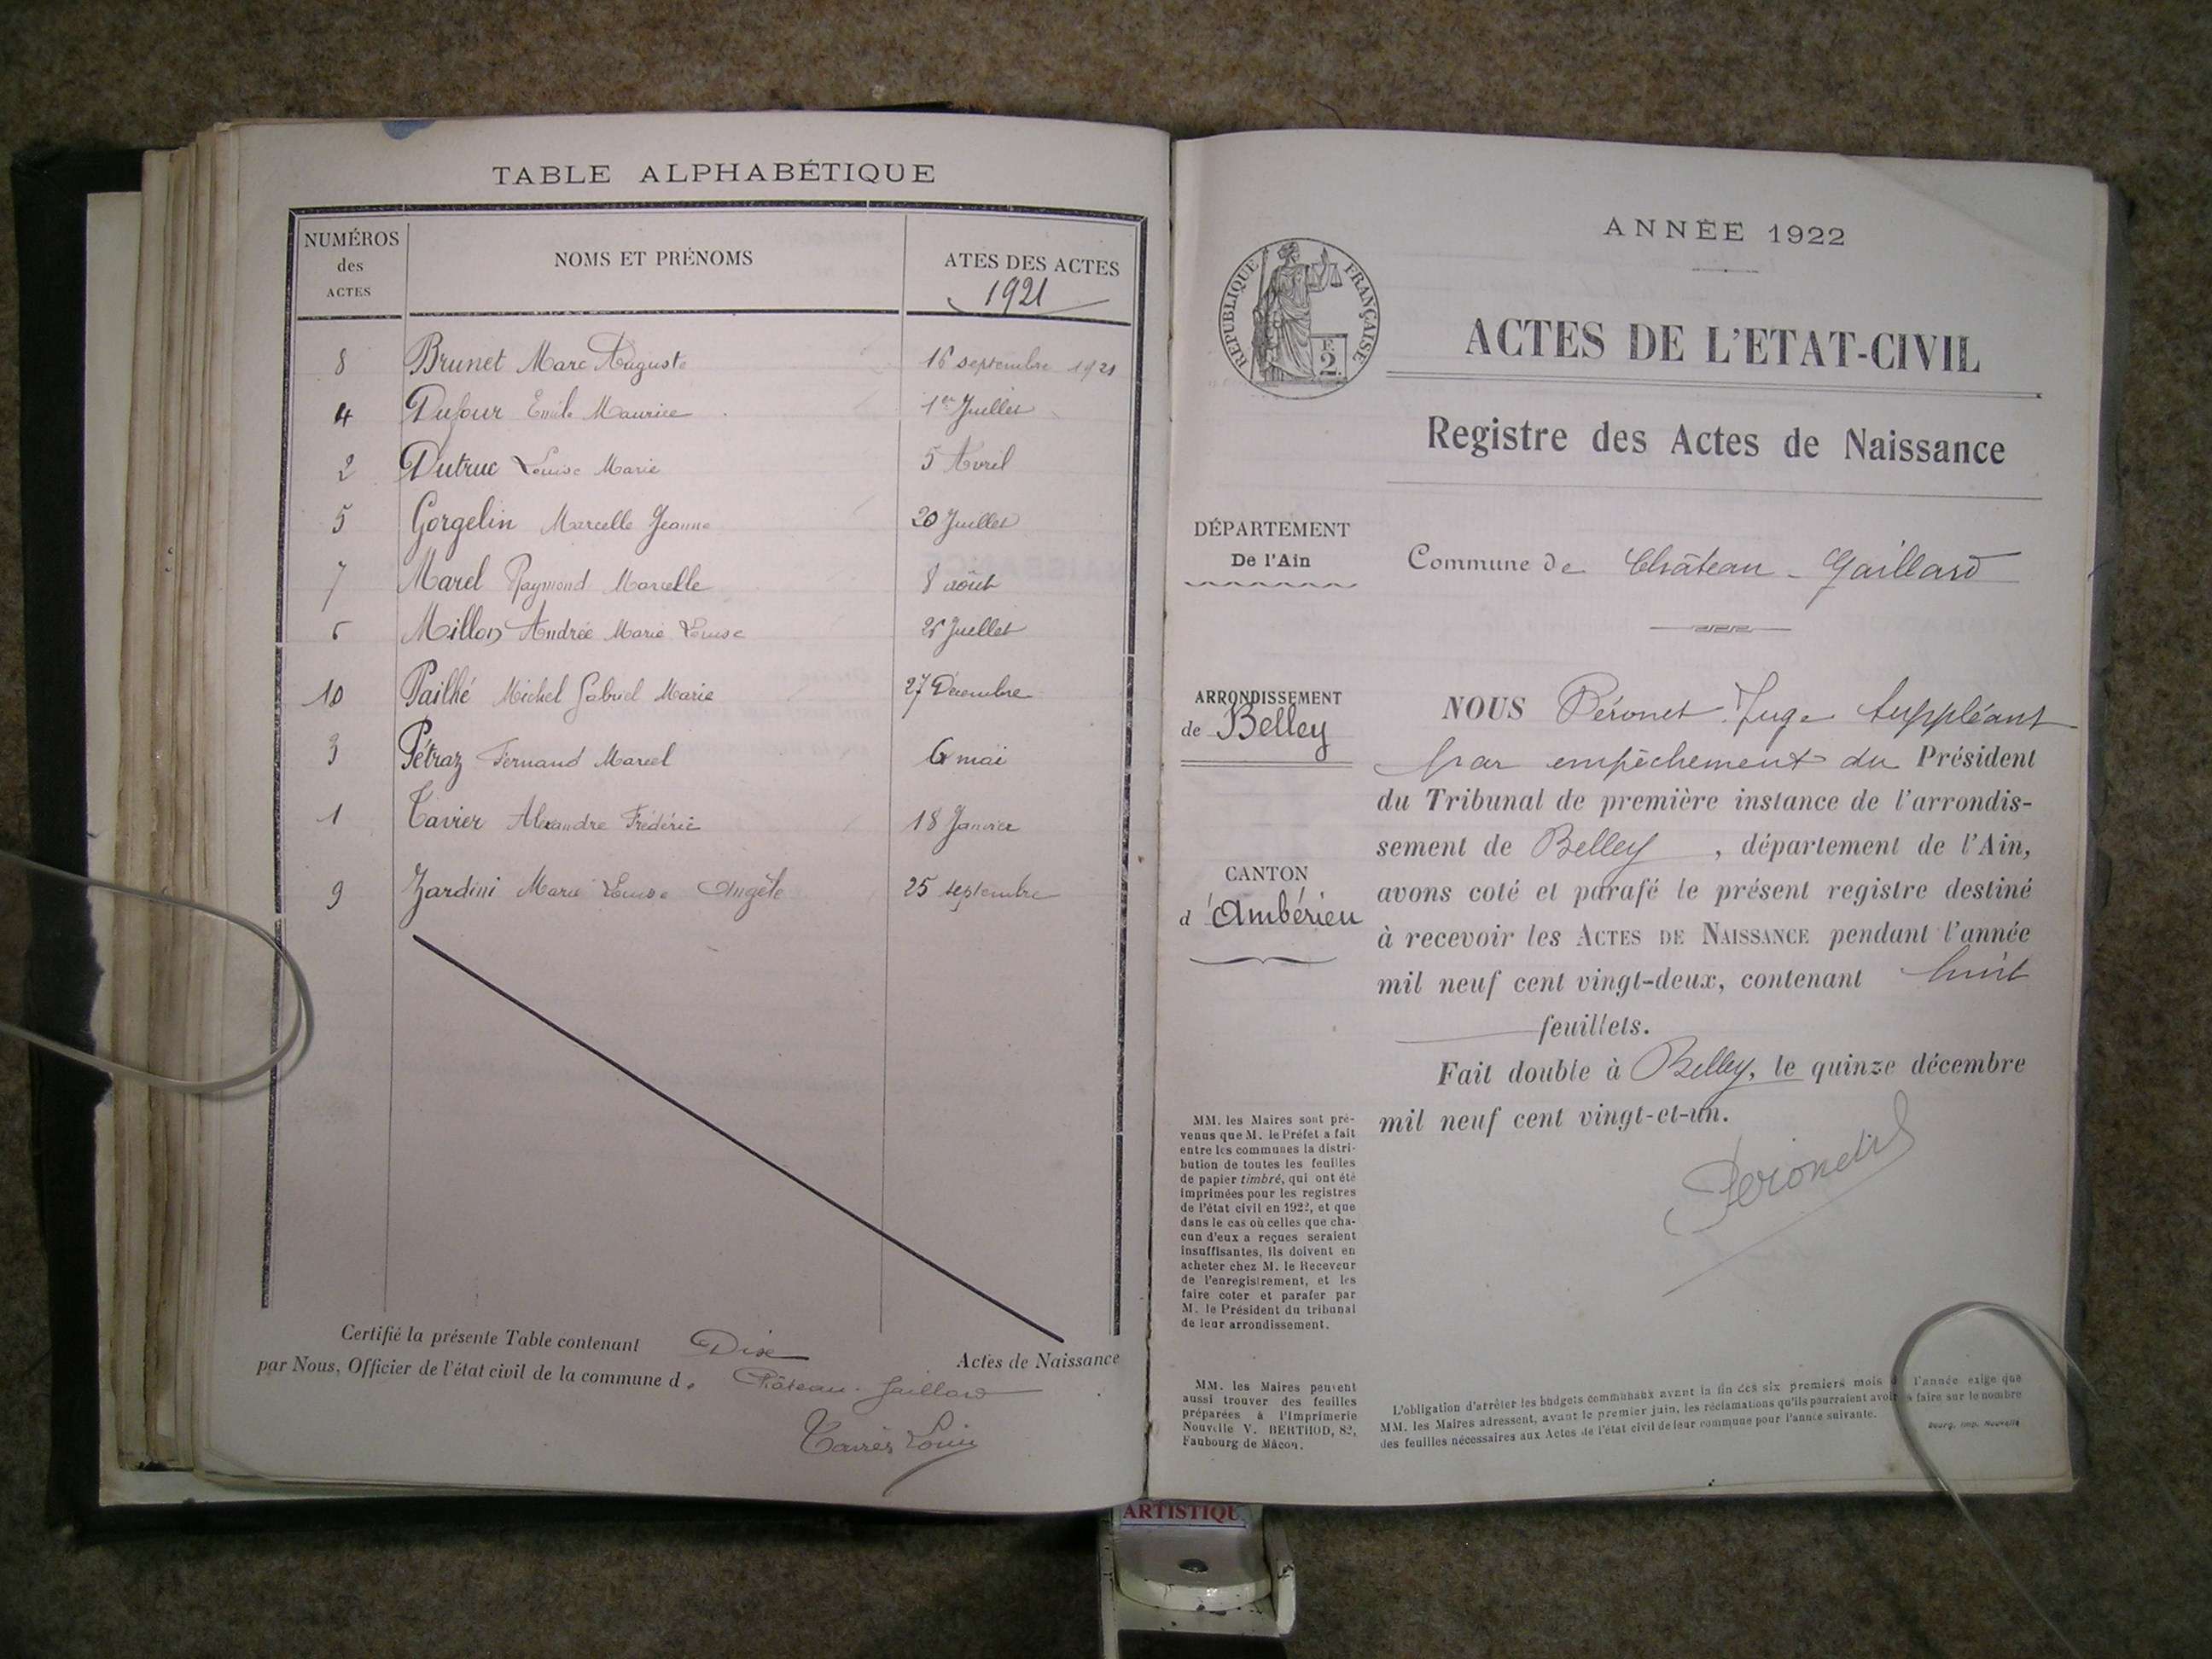 TABLE ALPHABÉTIQUE
NUMÉROS des ACTES
NOMS ET PRÉNOMS
ATES DES ACTES
1921
8 Brunet Marc Auguste 16 septembre 1921
4 Dufour Emile Maurice 1er Juillet
2 Dutruc Louise Marie 5 Avril
5 Gorgelin Marcelle Jeanne 20 Juillet
7 Marel Raymond Marcelle 8 août
6 Millon Andrée Marie Louise Juillet
10 Pailhé Michel Gabriel Marie 27 Décembre
3 Pétraz Fernand Marcel 6 mai
1 Tavier Alexandre Frédéric 18 Janvier
9 Zardini Marie Louise Angèle 25 septembre
Certifié la présente Table contenant Dix Actes de Naissance
par Nous, Officier de l'état civil de la commune d. Château-Gaillard
Louis
ANNÉE 1922
RÉPUBLIQUE FRANÇAISE
F. 2.
ACTES DE L'ETAT-CIVIL
Registre des Actes de Naissance
DÉPARTEMENT
De l'Ain
Commune de Château-Gaillard
ARRONDISSEMENT
de Belley
CANTON
d'Ambérieu
NOUS Péronet Juge Suppléant
par empêchement du Président
du Tribunal de première instance de l'arrondis-
sement de Belley, département de l'Ain,
avons coté et parafé le présent registre destiné
à recevoir les ACTES DE NAISSANCE pendant l'année
mil neuf cent vingt-deux, contenant huit
feuillets.
Fait double à Belley, le quinze décembre
mil neuf cent vingt-et-un.
MM. les Maires sont pré-
venus que M. le Préfet a fait
entre les communes la distri-
bution de toutes les feuilles
de papier timbré, qui ont été
imprimées pour les registres
de l'état civil en 1922, et que
dans le cas où celles que cha-
cun d'eux a reçues seraient
insuffisantes, ils doivent en
acheter chez M. le Receveur
de l'enregistrement, et les
faire coter et parafer par
M. le Président du tribunal
de leur arrondissement.
MM. les Maires peuvent
aussi trouver des feuilles
préparées à l'Imprimerie
Nouvelle V. BERTHOD, 82,
Faubourg de Mâcon.
L'obligation d'arrêter les budgets communaux avant la fin des six premiers mois d l'année exige que
MM. les Maires adressent, avant le premier juin, les réclamations qu'ils pourraient avoir à faire sur le nombre
des feuilles nécessaires aux Actes de l'état civil de leur commune pour l'année suivante.
Bourg, Imp. Nouvelle
ARTISTIQU